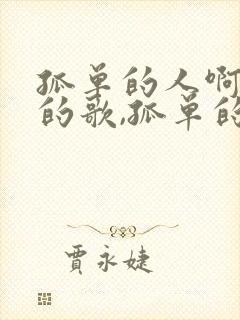 孤单的人啊
的歌,孤单的
贾永婕